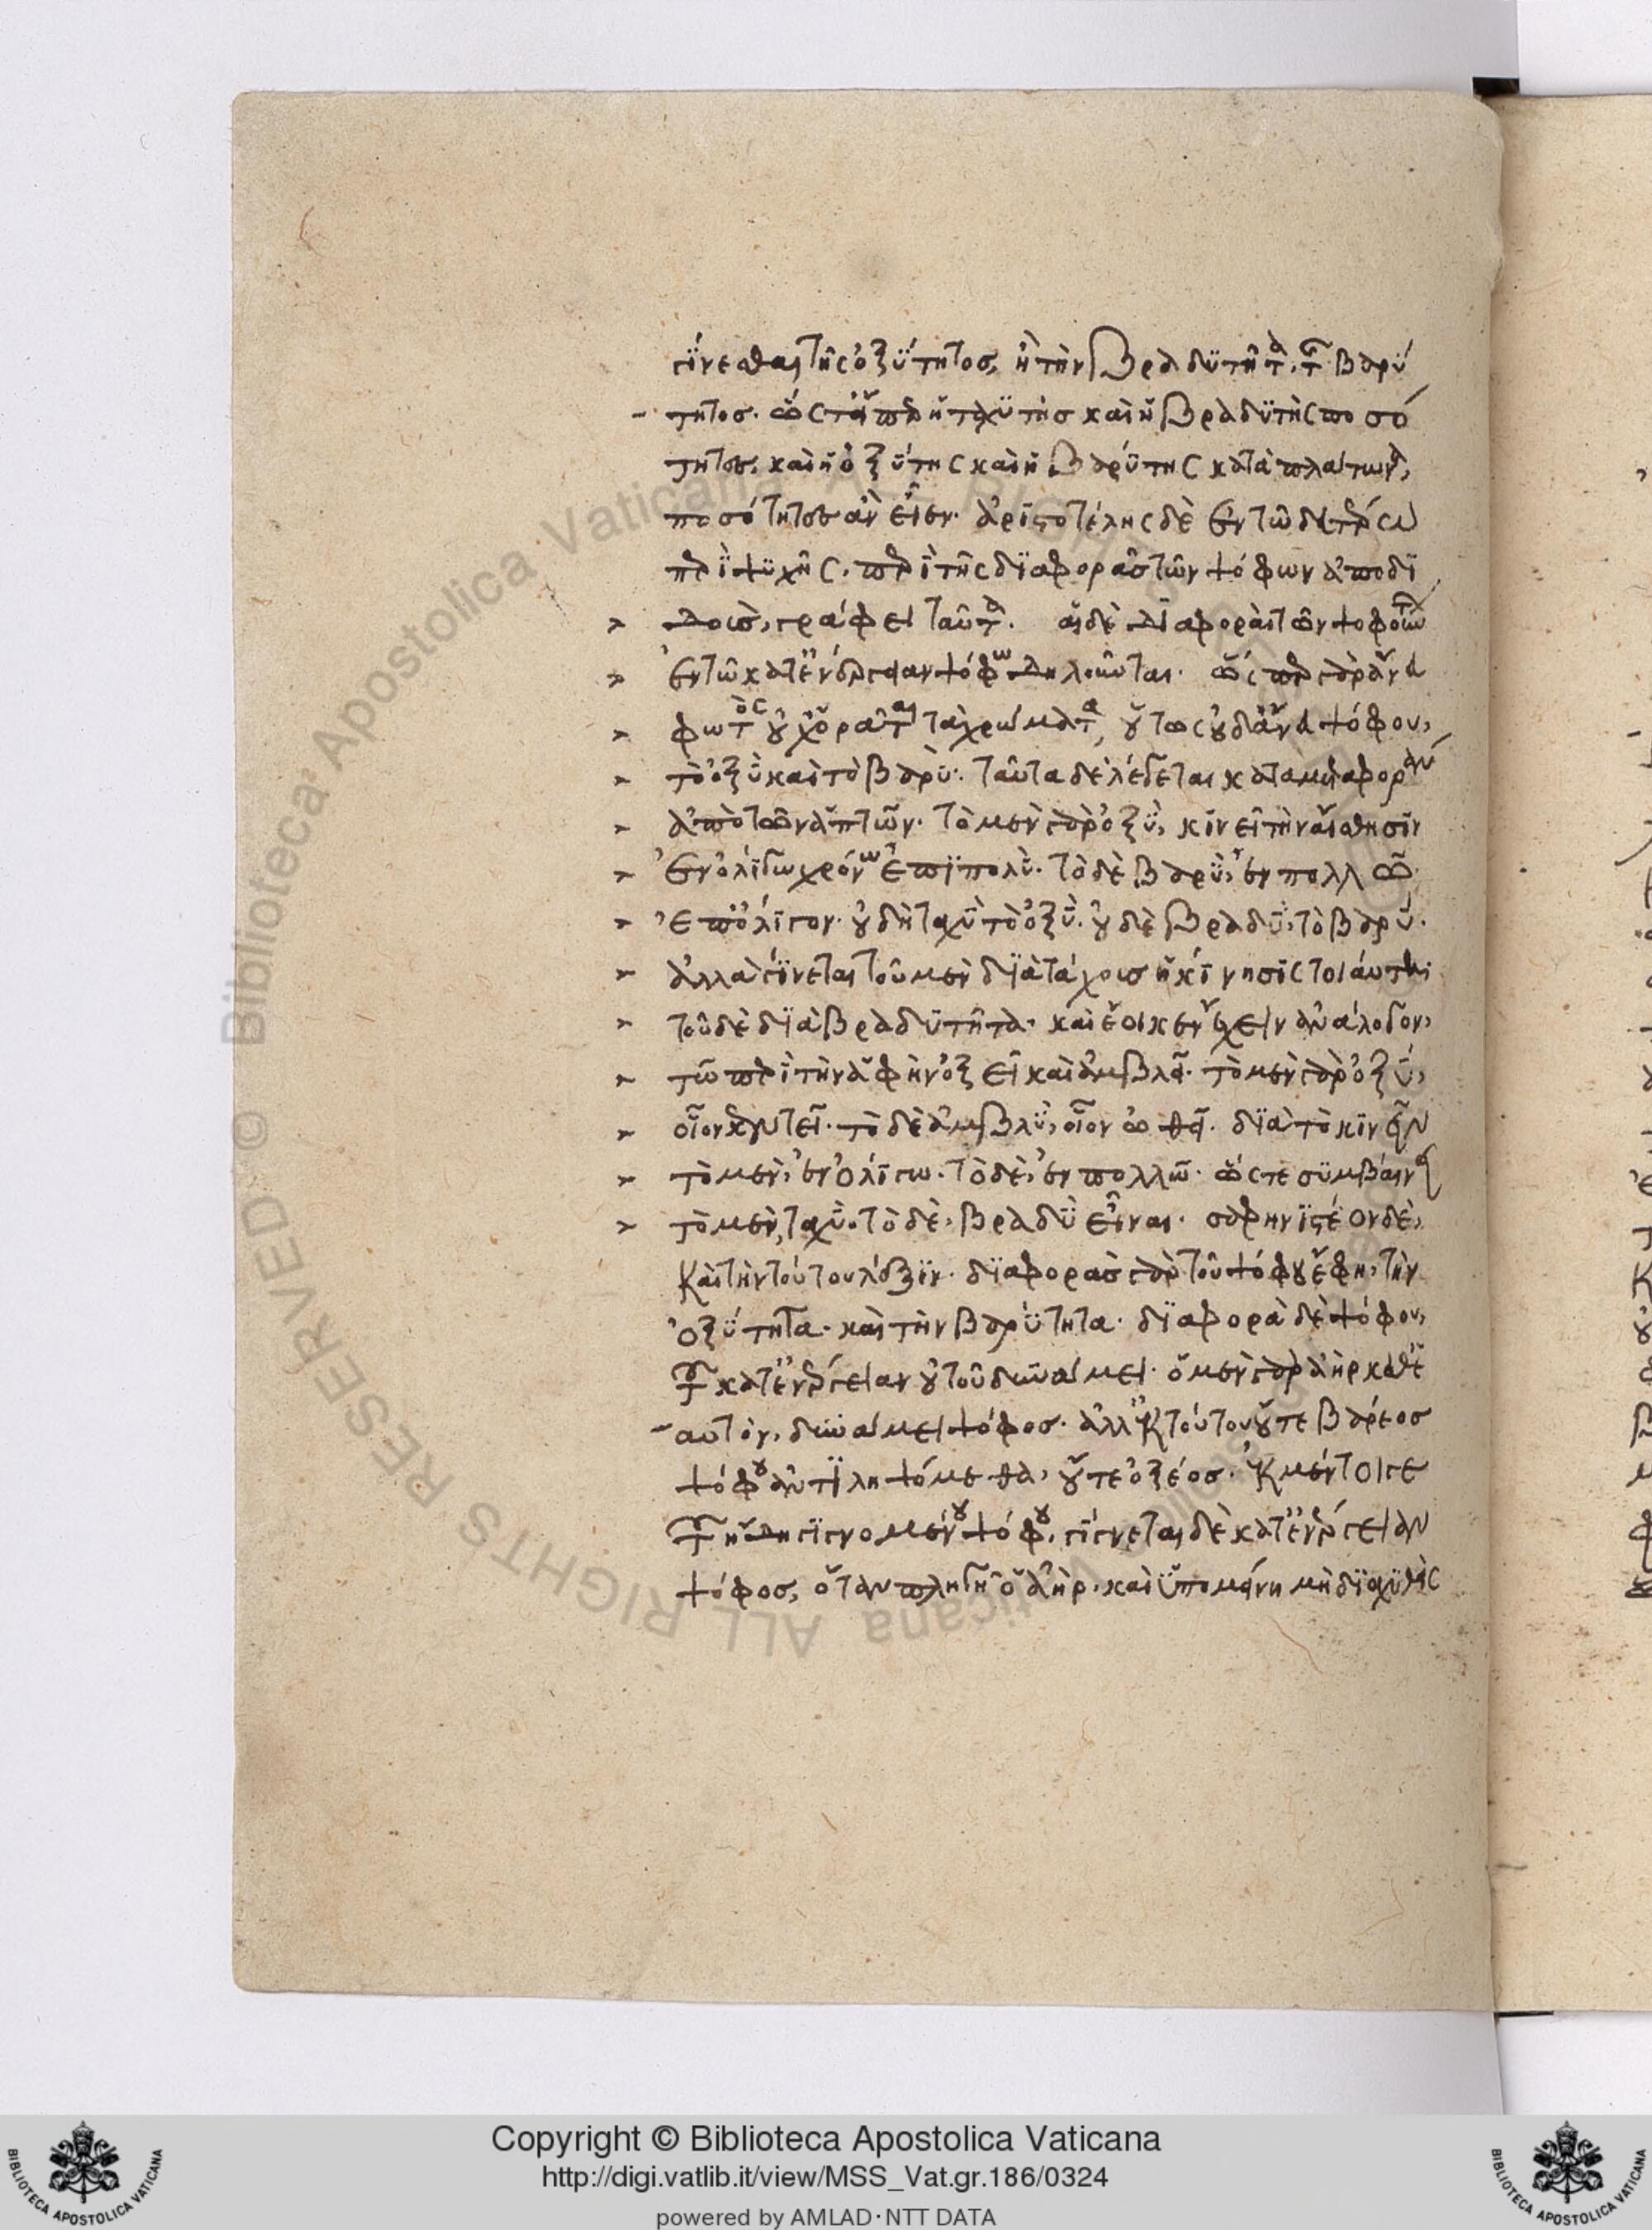 γίνεσθαι τῆς ὀξύτητος, ἢ τὴν βραδυτῆτα τῆς βαρύ
τητος. ὥστ' εἴπερ ἡ ταχυτὴς καὶ ἡ βραδυτὴς ποσό
τητες, καὶ ἡ ὀξύτης καὶ ἡ βαρύτης κατὰ πλάτωνα,
ποσότητες ἂν εἶεν. ἀριστοτέλης δὲ ἐν τῶ δευτέρω
περὶ ψυχῆς. περὶ τῆς διαφορᾶς τῶν ψόφων ἀποδι
δοὺς, γράφει ταῦτα. αἱ δὲ διαφοραὶ τῶν ψοφούντων
ἐν τῶ κατ' ἐνέργειαν ψόφω δηλοῦνται. ὥσπερ γὰρ ἄνευ
φωτὸς οὐχ ὁρᾶται τὰ χρώματα, οὕτως οὐδ' ἄνευ ψόφου,
τὸ ὀξὺ καὶ τὸ βαρύ. ταῦτα δὲ λέγεται κατὰ μεταφορὰν
ἀπὸ τῶν ἁπτῶν. τὸ μὲν γὰρ ὀξὺ, κινεῖ τὴν αἴσθησιν
ἐν ὀλίγω χρόνω ἐπὶ πολύ. τὸ δὲ βαρὺ, ἐν πολλῶ
ἐπ' ὀλίγον. οὐ δὴ ταχὺ τὸ ὀξύ. οὐδὲ βραδὺ, τὸ βαρύ.
ἀλλὰ γίνεται τοῦ μὲν διὰ τάχους ἡ κίνησις τοιαύτη
τοῦ δὲ διὰ βραδυτῆτα. καὶ ἔοικεν ἔχειν ἀνάλογον,
τῶ περὶ τὴν ἁφὴν ὀξεῖ καὶ ἀμβλεῖ. τὸ μὲν γὰρ ὀξὺ,
οἷον κεντεῖ. τὸ δὲ ἀμβλὺ, οἷον ὠθεῖ. διὰ τὸ κινεῖν
τὸ μὲν, ἐν ὀλίγω. τὸ δὲ, ἐν πολλῶ. ὥστε συμβαίνει
τὸ μὲν, ταχύ. τὸ δὲ, βραδὺ εἶναι. σαφηνιστέον δὲ,
καὶ τὴν τούτου λέξιν. διαφορὰς γὰρ τοῦ ψόφου ἔφη, τὴν
ὀξύτητα. καὶ τὴν βαρύτητα. διαφορὰ δὲ ψόφου,
τοῦ κατ' ἐνέργειαν οὐ τοῦ δυνάμει. ὁ μὲν γὰρ ἀὴρ καθ' ἑ
αυτὸν, δυνάμει ψόφος. ἀλλ' ἐκ τούτου οὔτε βαρέος
ψόφου ἀντιληψόμεθα, οὔτε ὀξέος. ἐκ μέντοι γε
τοῦ ἤδη γιγνομένου ψόφου. γίγνεται δὲ κατ' ἐνέργειαν
ψόφος, ὅταν πληγῆ ὁ ἀὴρ. καὶ ὑπομείνη μὴ διαχυθεὶς
Copyright © Biblioteca Apostolica Vaticana
http://digi.vatlib.it/view/MSS_Vat.gr.186/0324
powered by AMLAD·NTT DATA
BIBLIOTECA APOSTOLICA VATICANA
BIBLIOTECA APOSTOLICA VATICANA